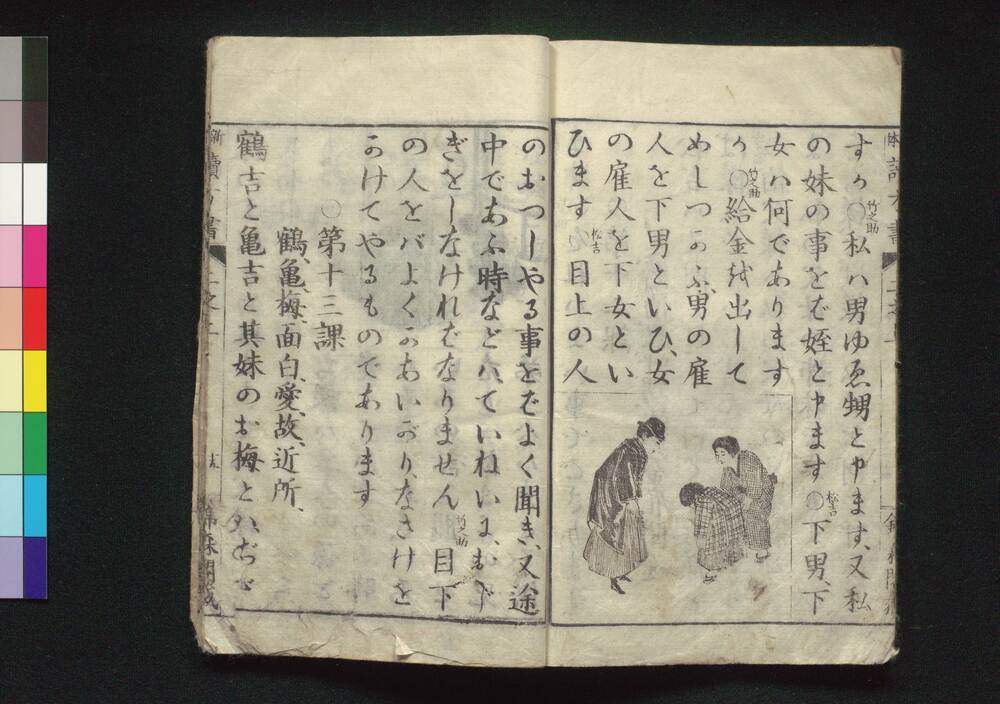 すか○竹之助私ハ男ゆゑ甥と申ます、又私
の妹の事をば姪と申ます○松吉下男、下
女ハ何であります
か○竹之助給金を出して
めしつかふ、男の雇
人を下男といひ、女
の雇人を下女とい
ひます松吉目上の人
のおつしやる事をばよく聞き、又途
中であふ時などハ、ていねいに、おじ
ぎをしなければなりません竹之助目下
の人をバよくかあいがりなさけを
かけてやるものであります
○第十三課
鶴、亀、梅、面白、愛、故、近所、
鶴吉と亀吉と其妹のお梅とハ、